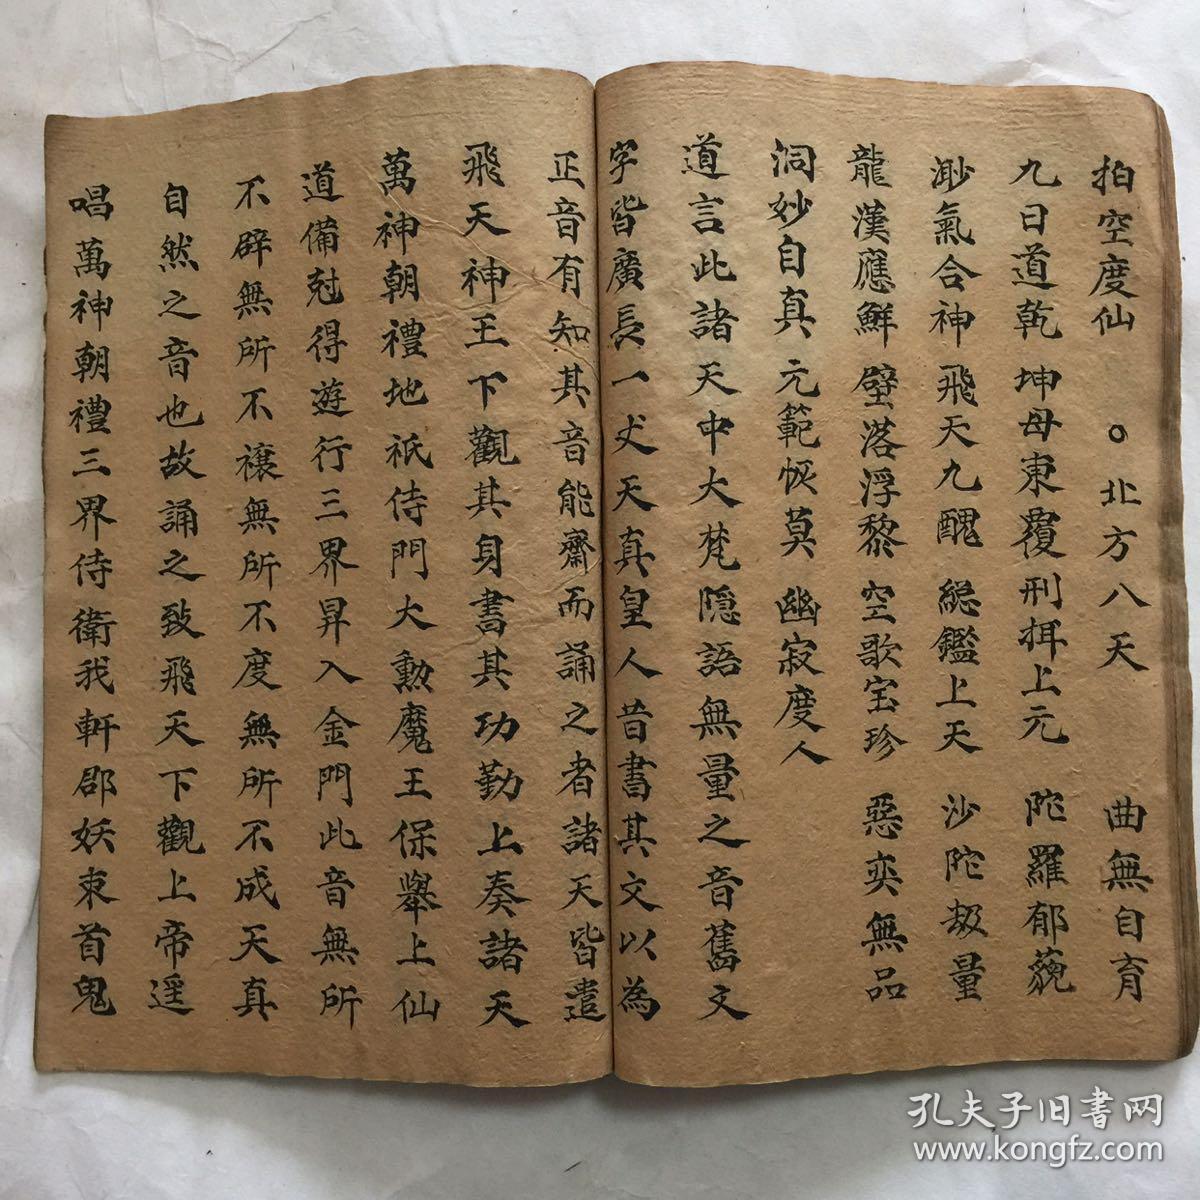 拍空度仙 ○北方八天 曲無自育
九日道乾 坤母東覆 刑搑上元 陀羅郁藐
渺氣合神 飛天九醜 総鑑上天 沙陀劫量
龍漢應鮮 壁落浮黎 空歌宝珍 惡奕無品
洞妙自真 元範恢莫 幽寂度人
道言此諸天中大梵隱語無量之音舊文
字皆廣長一丈天真皇人昔書其文以為
正音有知其音能齋而誦之者諸天皆遣
飛天神王下觀其身書其功勤上奏諸天
萬神朝禮地祇侍門大勲魔王保舉上仙
道備尅得遊行三界昇入金門此音無所
不辟無所不禳無所不度無所不成天真
自然之音也故誦之致飛天下觀上帝遥
唱萬神朝禮三界侍衛我軒郡妖束首鬼
孔夫子旧书网
www.kongfz.com